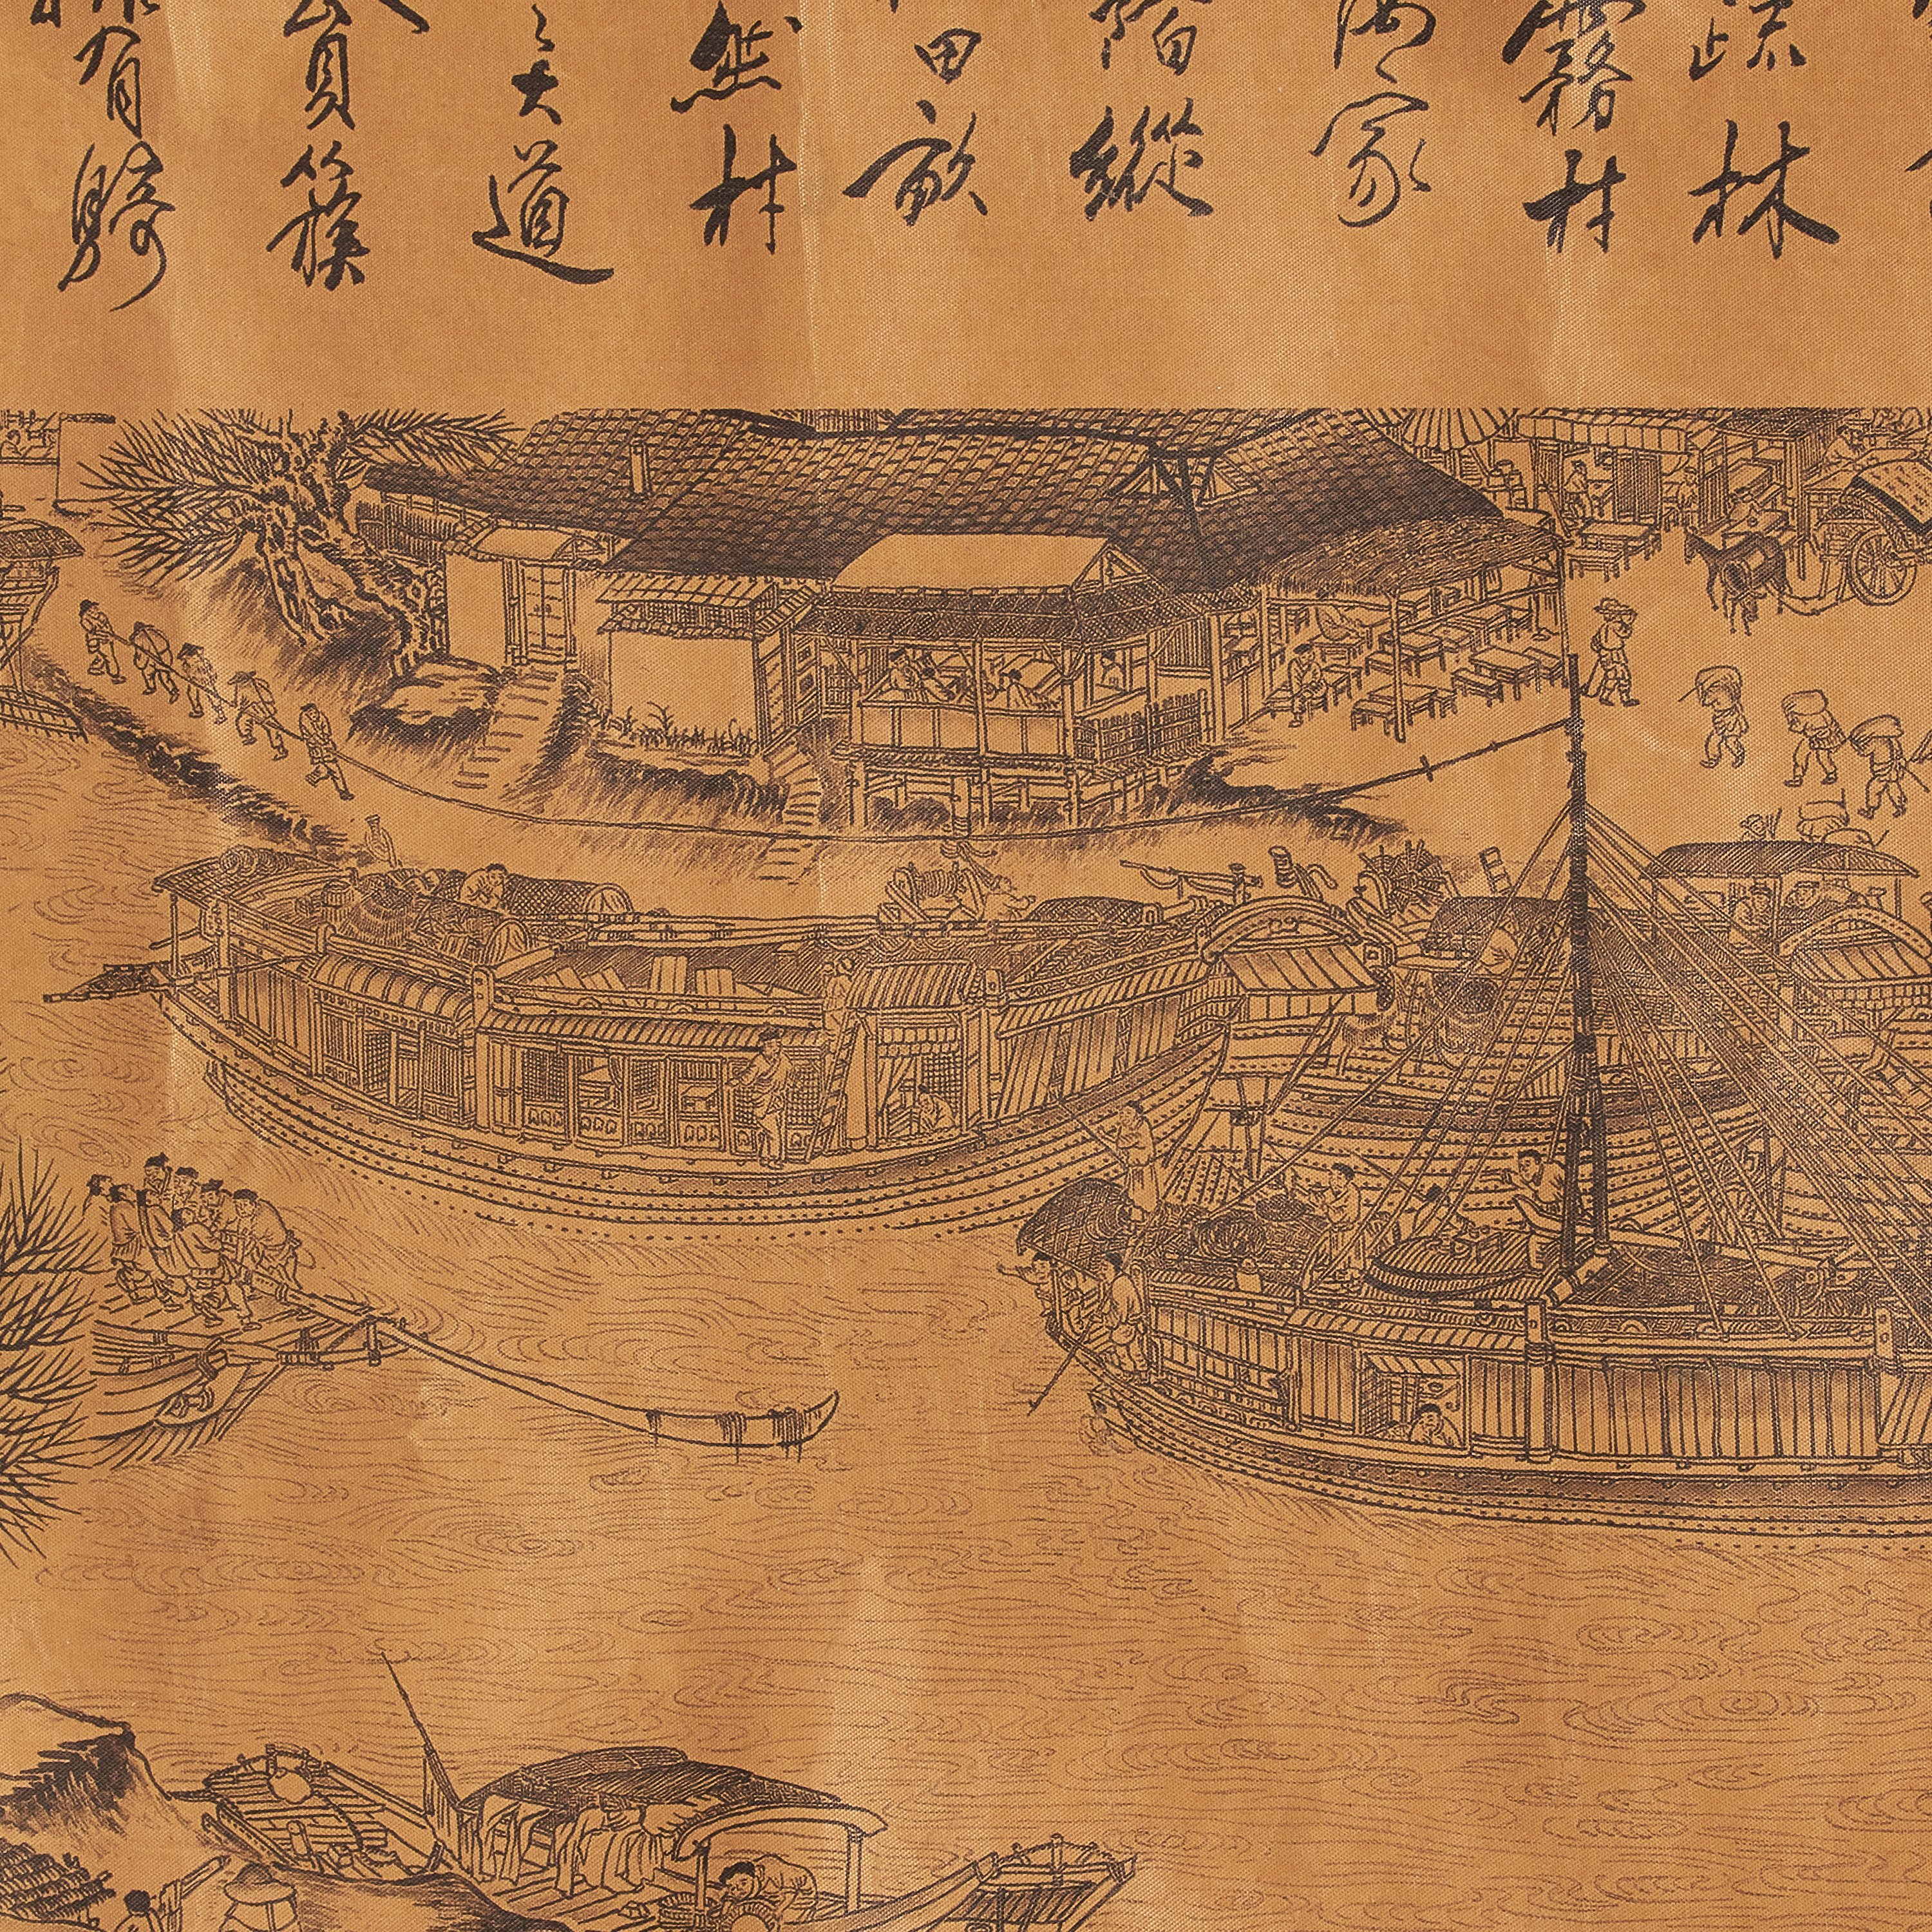 疏林
霧村
家
縱
田畝
然村
之大道
負簇
有騎